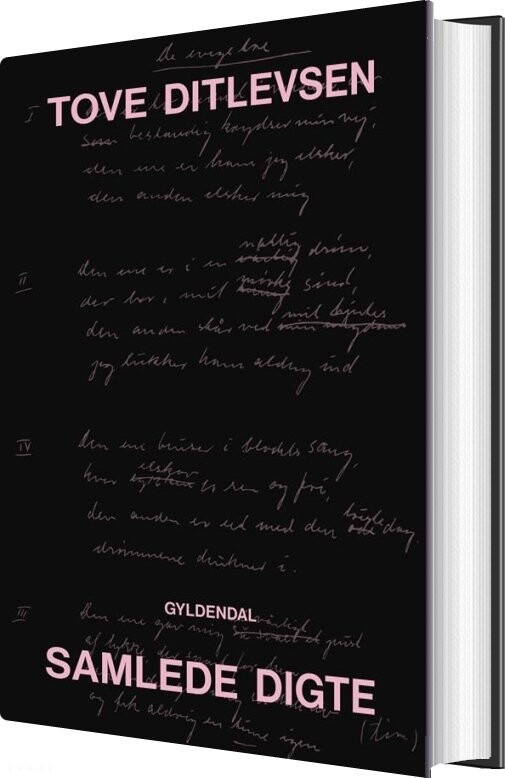 De evige tre
TOVE DITLEVSEN
I
som bestandig krydser min vej,
den ene er ham jeg elsker,
den anden elsker mig
II
Den ene er i en natlig drøm,
der bor i mit mørke sind,
den anden står ved mit hjertes
jeg lukker ham aldrig ind
IV
Den ene bruser i blodets sang,
hvor elskov er ren og fri,
den anden er ét med den dag
drømmene drukner i.
III
Den ene gav mig pust
GYLDENDAL
af lykke der
SAMLEDE DIGTE
og fik aldrig en time igen